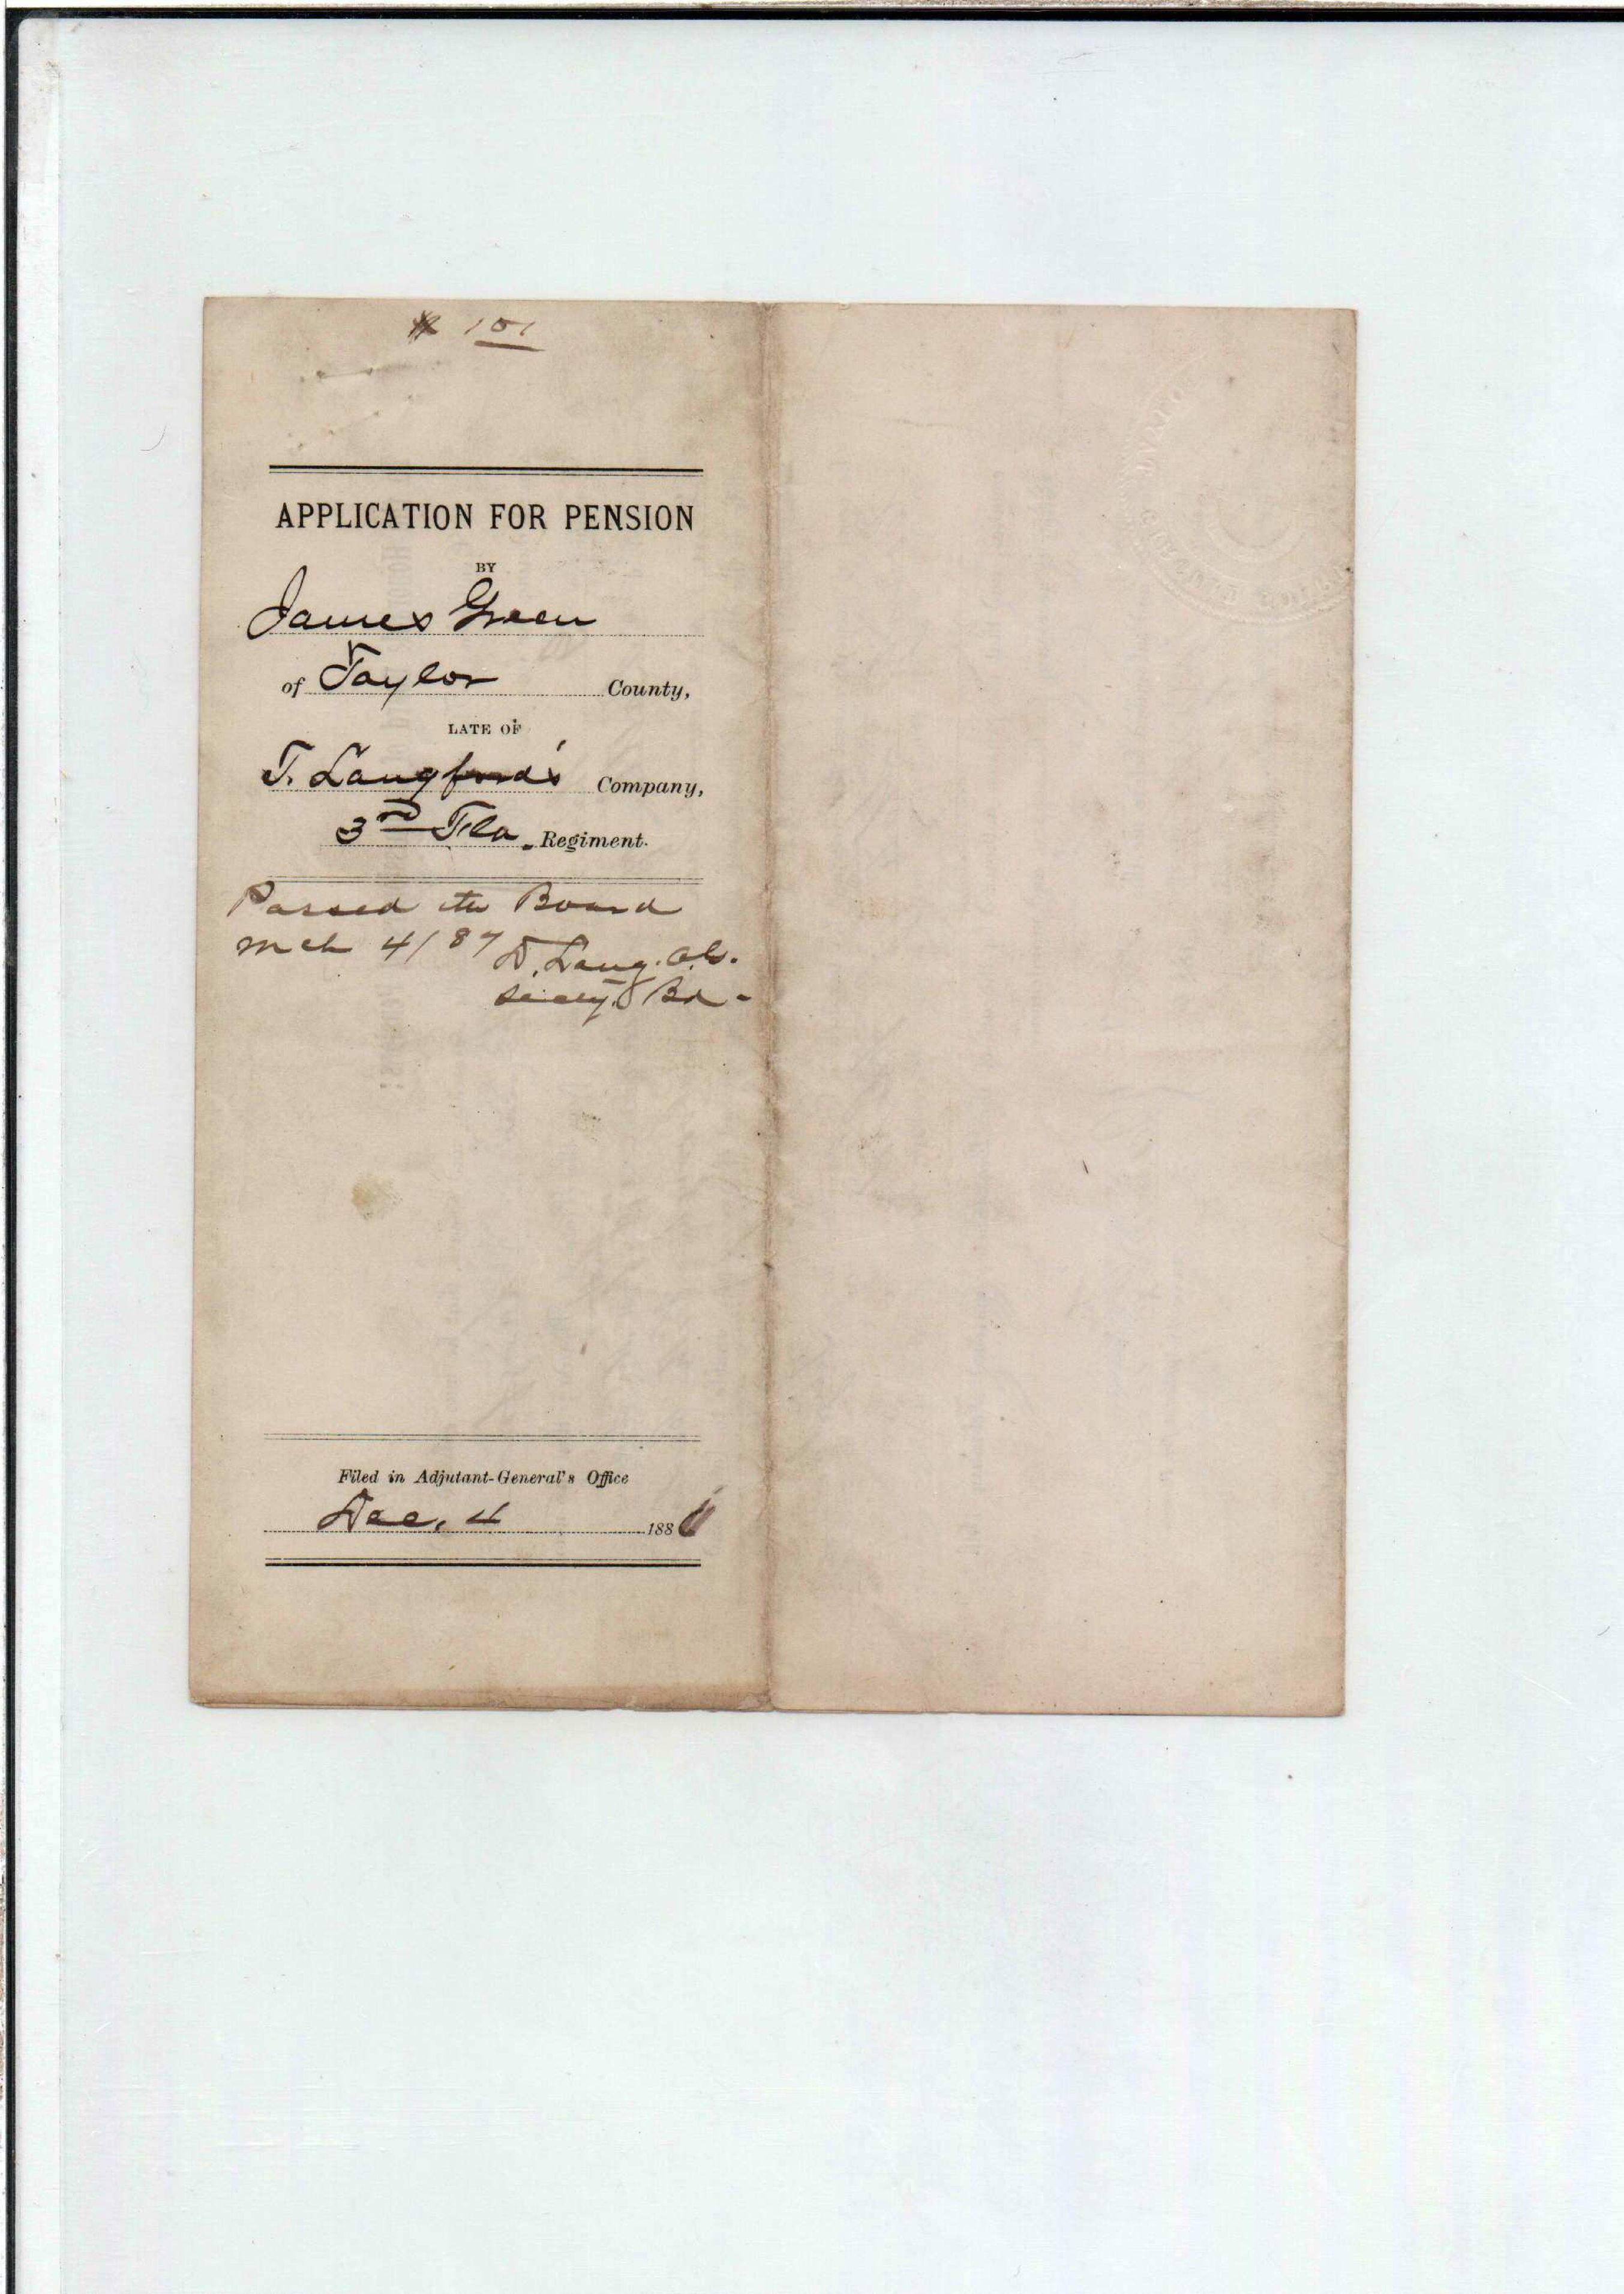 # 101
APPLICATION FOR PENSION
BY
James Green
of Taylor County,
LATE OF
T. Langford's Company,
3rd Fla. Regiment.
Passed the Board
Mch 4/87
D. Lang.
Secty. Bd.
Filed in Adjutant-General's Office
Dec. 4 188